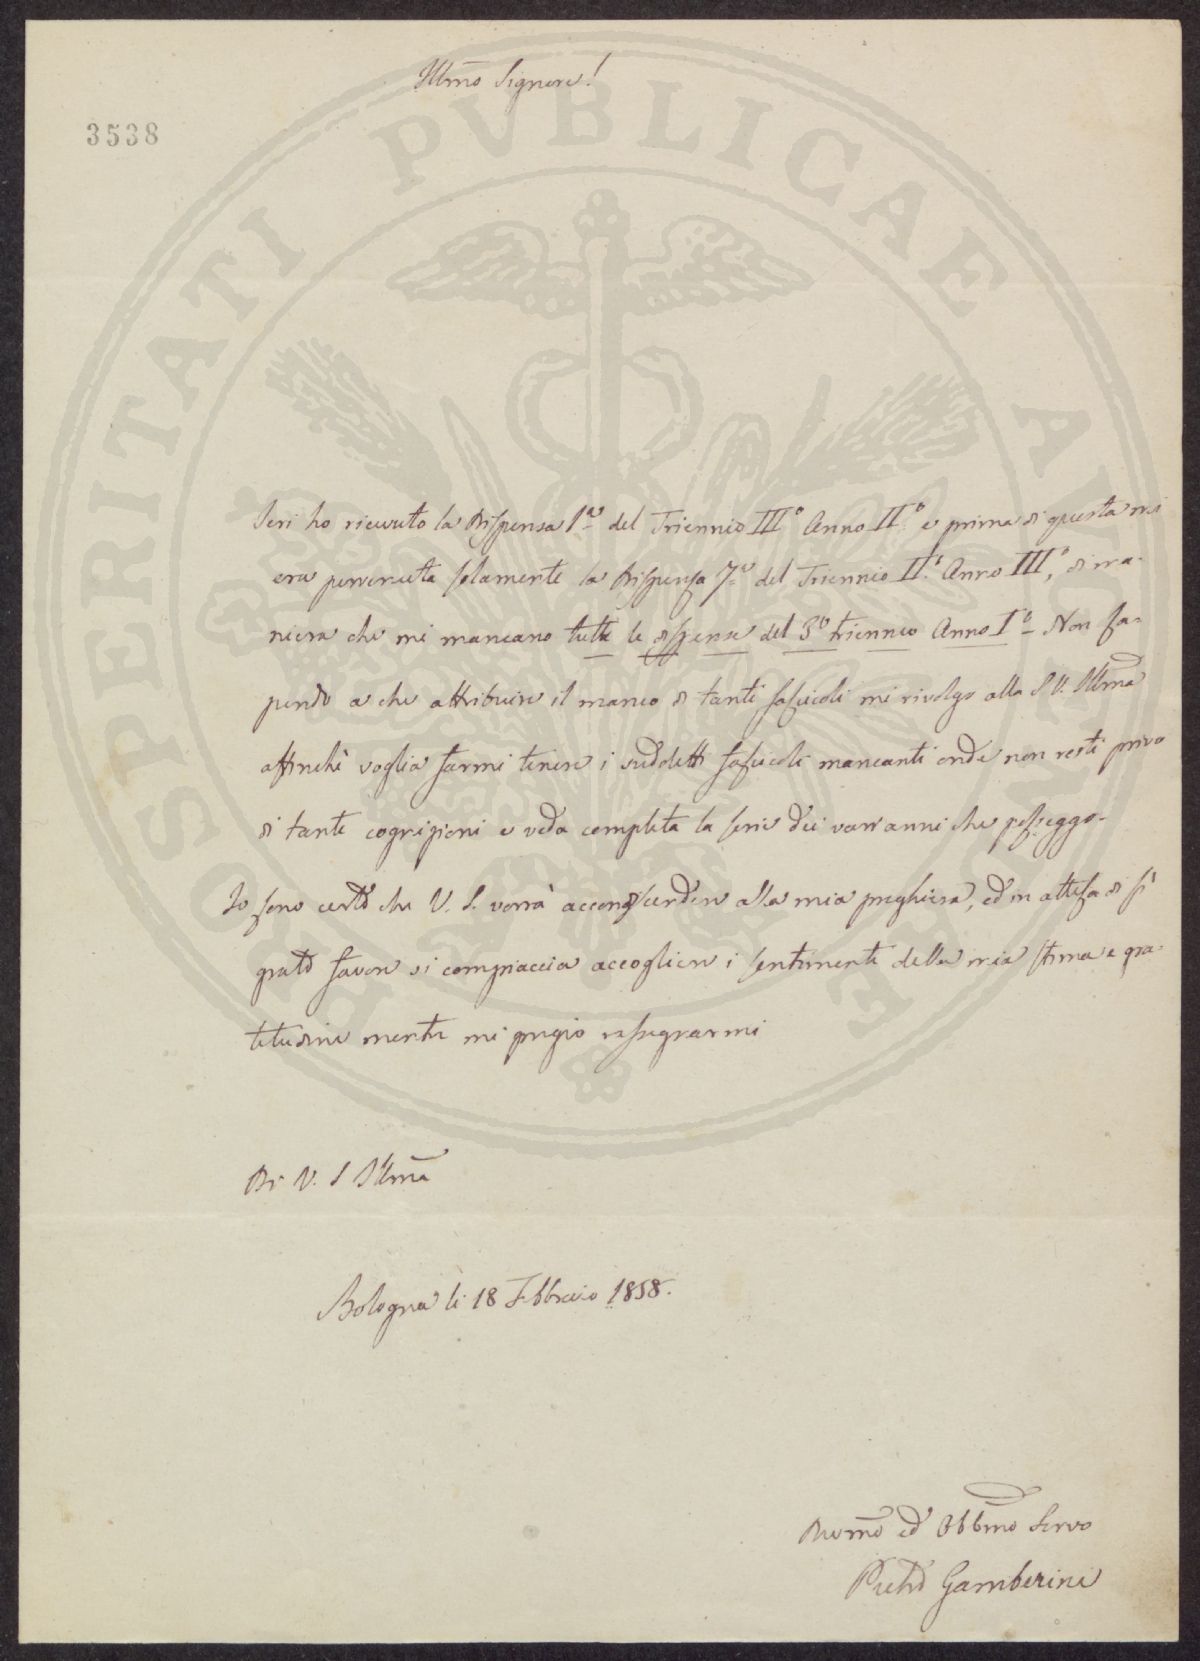 Illmo Signore!
3538
Ieri ho ricevuto la Dispensa 1a del Triennio III° Anno II° e prima di questa mi
era pervenuta solamente la Dispensa 7a del Triennio II° Anno III°, di ma-
niera che mi mancano tutte le dispense del 3° triennio Anno I° - Non sa-
pendo a che attribuire il manco di tanti fascicoli mi rivolgo alla S. V. Illma
affinchè voglia farmi tenere i suddetti fascicoli mancanti onde non resti privo
di tante cognizioni e veda completa la serie dei varî anni che posseggo.
Io sono certo che V. S. vorrà accondiscendere alla mia preghiera, ed in attesa di sì
grato favore si compiaccia accogliere i sentimenti della mia stima e gra-
titudine mentre mi pregio rassegnarmi
Di V. S Illma
Bologna li 18 Febbraio 1858.
Devmo ed Obbmo Servo
Pietro Gamberini
PROSPERITATI PVBLICAE AVGENDAE